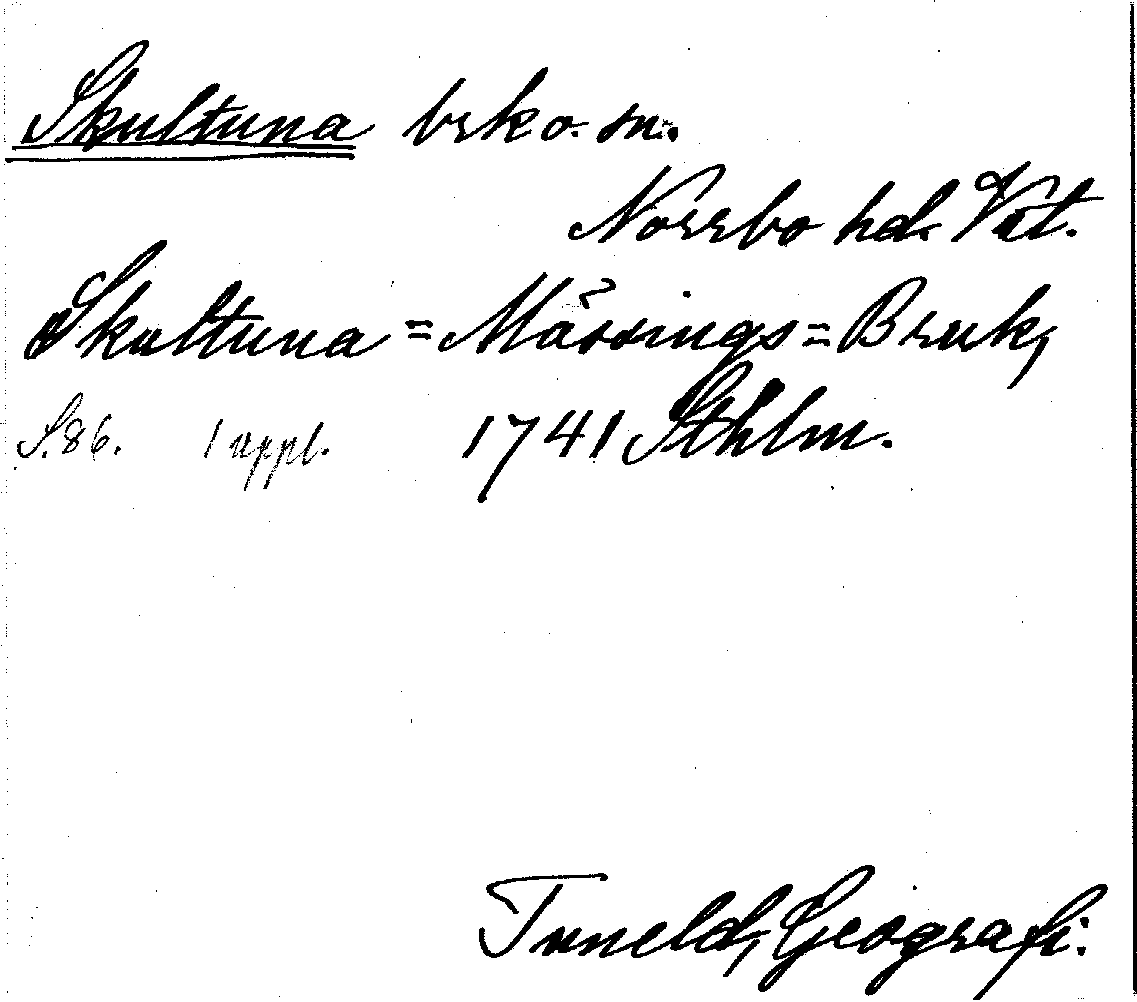 Skultuna brk o. sn.
Norrbo hd. Vstm.
Skultuna=Mässings=Bruk,
S. 86. 1 uppl. 1741 Sthlm.
Tuneld, Geografi.